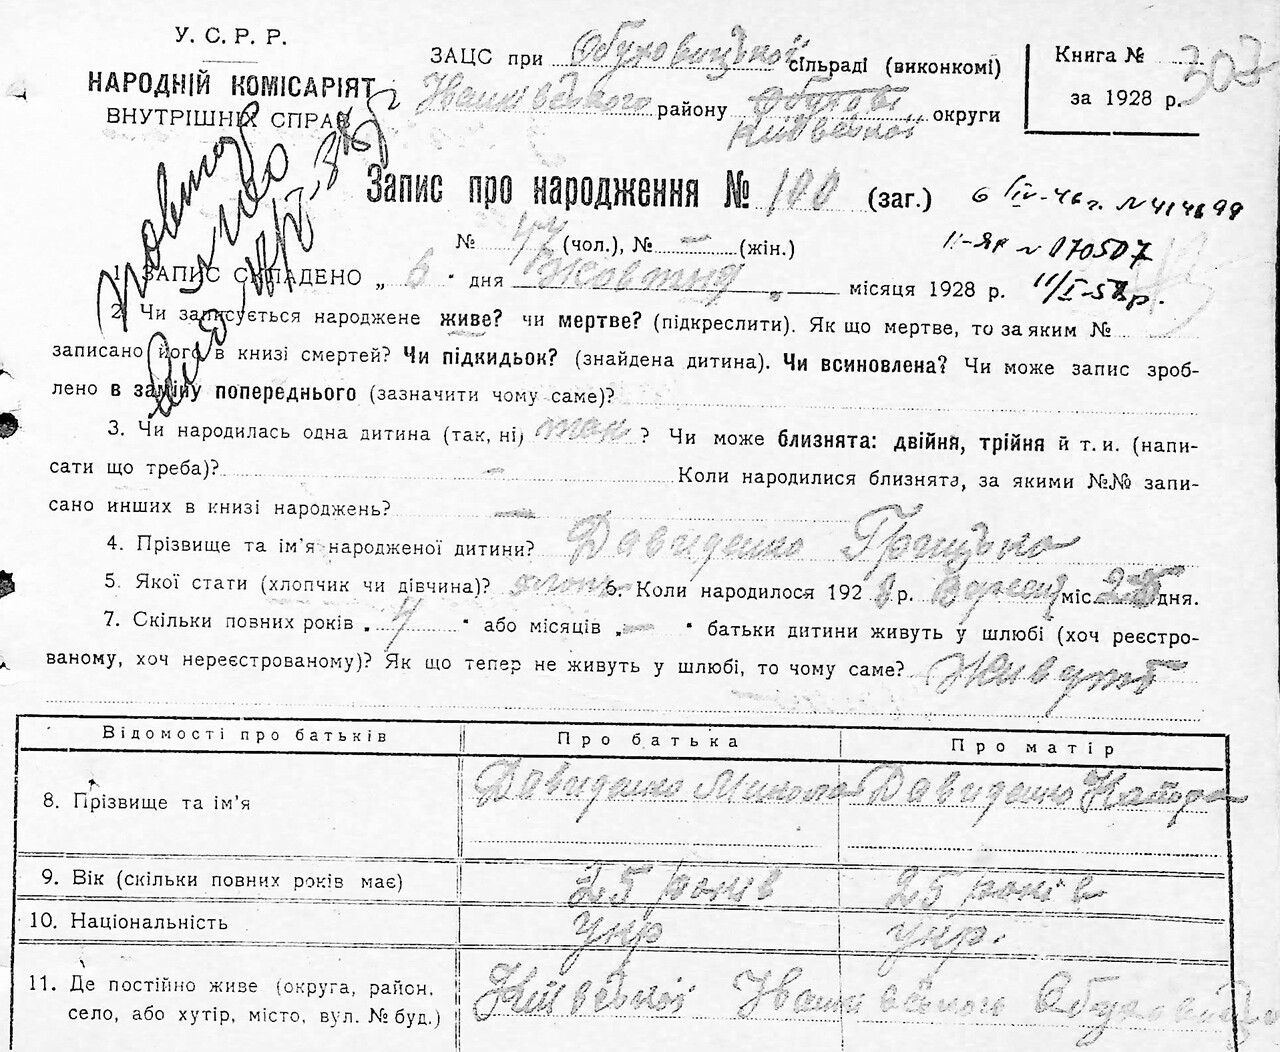 У. С. Р. Р.
НАРОДНІЙ КОМІСАРІЯТ
ВНУТРІШНІХ СПРАВ
ЗАЦС при Обуховицькой сільраді (виконкомі)
Іванківського району Київської округи
Книга №
за 1928 р.
307
Запис про народження № 100 (заг.)
6 IV-46 г. N 414699
№ 47 (чол.), № — (жін.)
II-ЯР N 070507
1. ЗАПИС СКЛАДЕНО „ 6 " дня Жовтня місяця 1928 р.
11/I-58р.
2. Чи записується народжене живе? чи мертве? (підкреслити). Як що мертве, то за яким №
записано його в книзі смертей? Чи підкидьок? (знайдена дитина). Чи всиновлена? Чи може запис зроб-
лено в заміну попереднього (зазначити чому саме)?
3. Чи народилась одна дитина (так, ні) так ? Чи може близнята: двійня, трійня й т. и. (напи-
сати що треба)? — Коли народилися близнята, за якими №№ запи-
сано инших в книзі народжень? —
4. Прізвище та ім'я народженої дитини? Давиденко Грицько
5. Якої статі (хлопчик чи дівчина)? хлоп. 6. Коли народилося 1928 р. міс. 25 дня.
7. Скільки повних років „ 4 " або місяців „ — " батьки дитини живуть у шлюбі (хоч реєстро-
ваному, хоч нереєстрованому)? Як що тепер не живуть у шлюбі, то чому саме? Живуть
Відомості про батьків Про батька Про матір
8. Прізвище та ім'я Давиденко Микола Давиденко Катера
9. Вік (скільки повних років має) 25 років 25 років
10. Національність укр укр.
11. Де постійно живе (округа, район, Київської Іванківського
село, або хутір, місто, вул. № буд.)